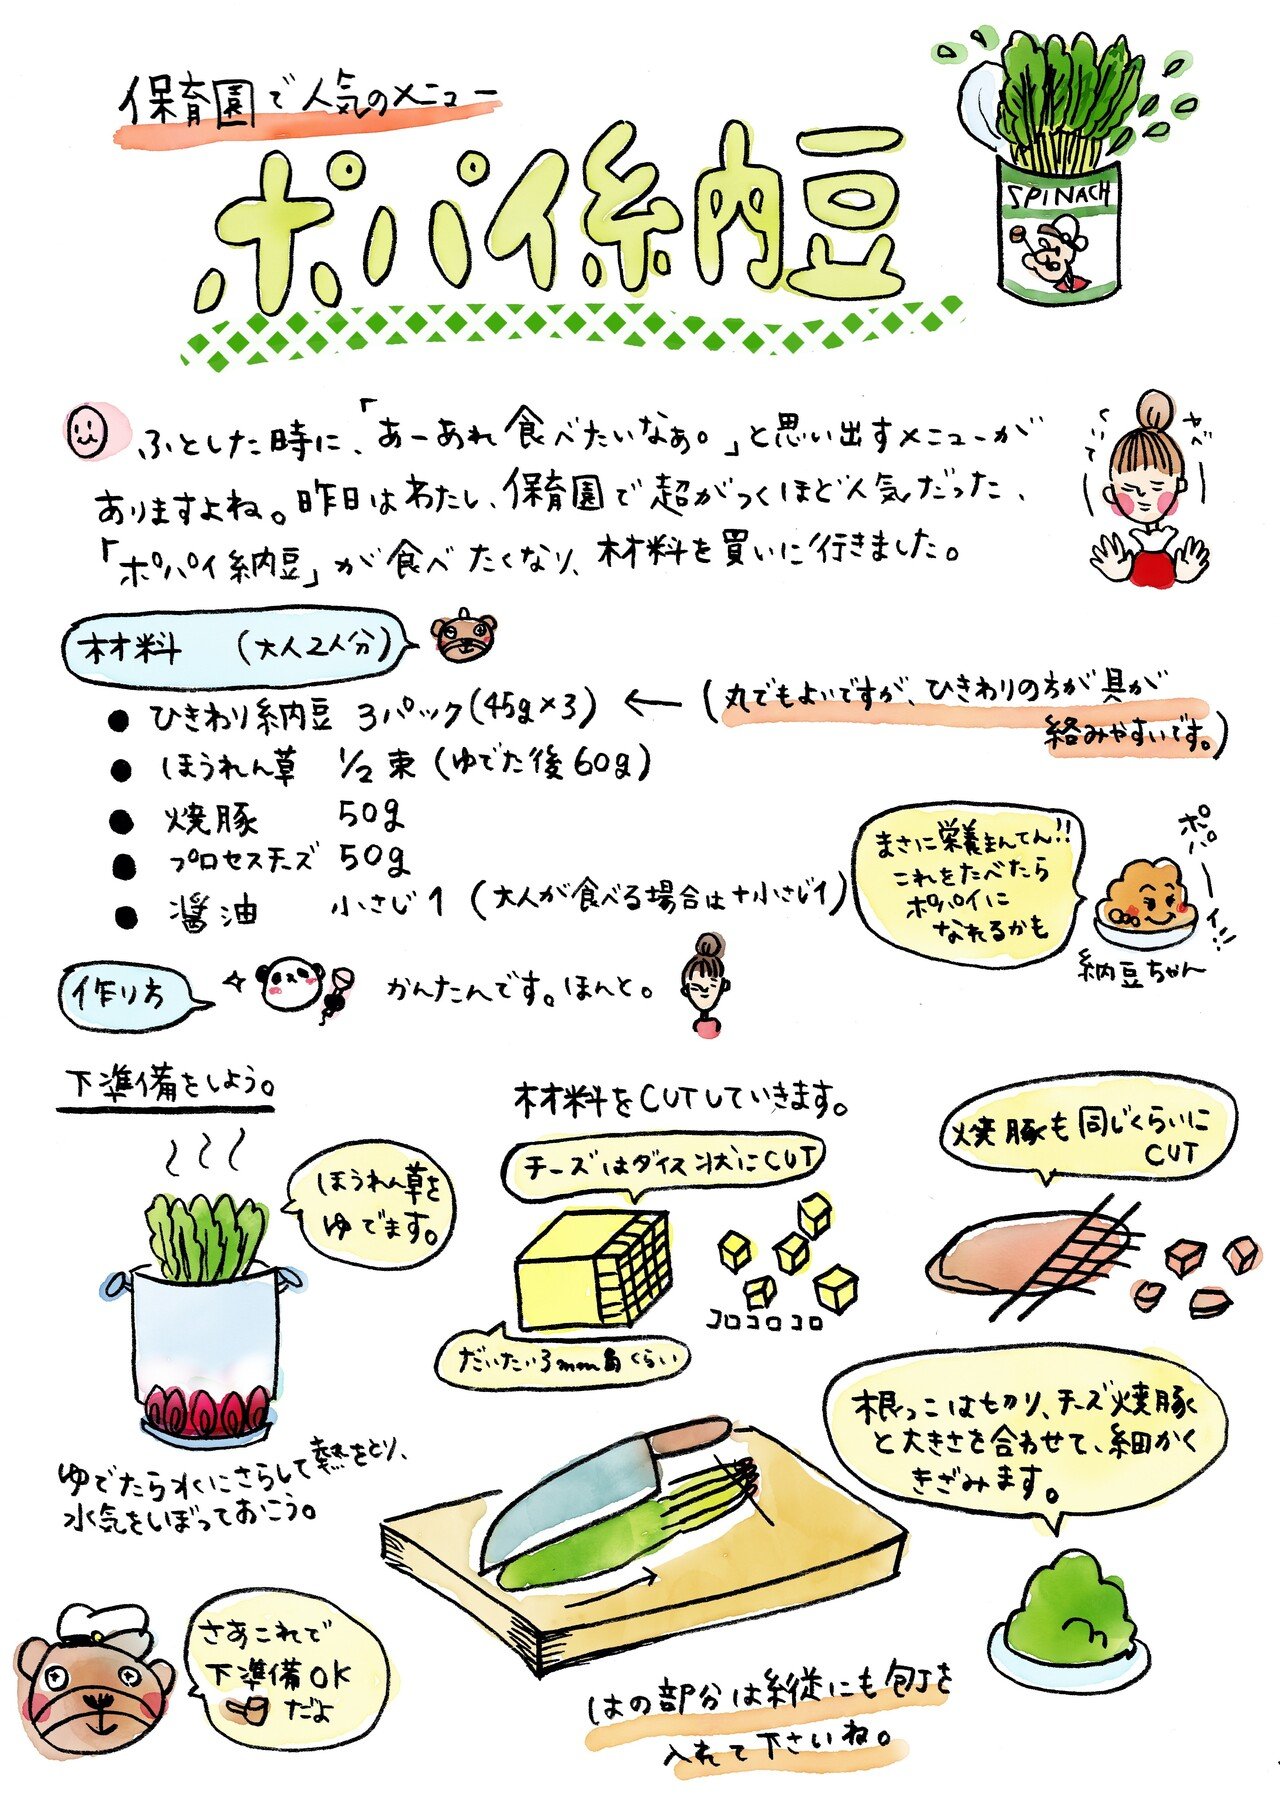 保育園で人気のメニュー
ポパイ納豆
SPINACH
ふとした時に、「あーあれ食べたいなぁ。」と思い出すメニューが
ありますよね。昨日はわたし、保育園で超がつくほど人気だった、
「ポパイ納豆」が食べたくなり、材料を買いに行きました。
材料 (大人2人分)
● ひきわり納豆 3パック(45g×3) ← (丸でもよいですが、ひきわりの方が具が
絡みやすいです。)
● ほうれん草 1/2束(ゆでた後60g)
● 焼豚 50g
● プロセスチーズ 50g
● 醤油 小さじ1 (大人が食べる場合は+小さじ1)
まさに栄養まんてん!!
これをたべたら
ポパイに
なれるかも
ポパーイ!!
納豆ちゃん
作り方
かんたんです。ほんと。
下準備をしよう。
ほうれん草を
ゆでます。
ゆでたら水にさらして熱をとり、
水気をしぼっておこう。
材料をCUTしていきます。
チーズはダイス状にCUT
コロコロコロ
だいたい3mm角くらい
焼豚も同じくらいに
CUT
根っこは切り、チーズ焼豚
と大きさを合わせて、細かく
きざみます。
はの部分は縦にも包丁を
入れて下さいね。
さあこれで
下準備OK
だよ